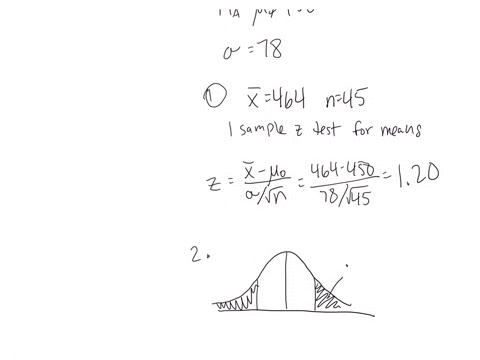 σ = 78
① x̄ = 464 n = 45
1 sample z test for means
z = (x̄ - μ₀)/(σ/√n) = (464 - 450)/(78/√45) = 1.20
2.